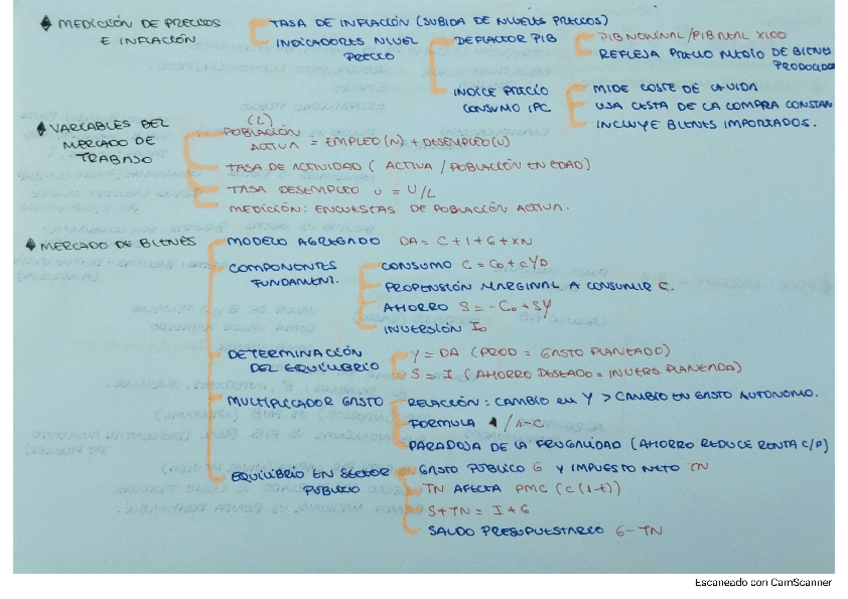 MEDICIÓN DE PRECIOS
E INFLACIÓN
TASA DE INFLACIÓN (SUBIDA DE NIVELES PRECIOS)
INDICADORES NIVEL
PRECIO
DEFLACTOR PIB
PIB NOMINAL/PIB REAL X100
REFLEJA PRECIO MEDIO DE BIENES
PRODUCIDOS
INDICE PRECIO
CONSUMO IPC
MIDE COSTE DE LA VIDA
USA CESTA DE LA COMPRA CONSTAN
INCLUYE BIENES IMPORTADOS.
VARIABLES DEL
MERCADO DE
TRABAJO
(L)
POBLACIÓN
ACTIVA = EMPLEO (N) + DESEMPLEO (U)
TASA DE ACTIVIDAD ( ACTIVA / POBLACIÓN EN EDAD)
TASA DESEMPLEO u = U/L
MEDICIÓN: ENCUESTAS DE POBLACIÓN ACTIVA.
MERCADO DE BIENES
MODELO AGREGADO DA = C + I + G + XN
COMPONENTES
FUNDAMENT.
CONSUMO C = C0 + cYD
PROPENSIÓN MARGINAL A CONSUMIR C.
AHORRO S = -C0 + SY
INVERSIÓN I0
DETERMINACIÓN
DEL EQUILIBRIO
Y = DA (PROD = GASTO PLANEADO)
S = I (AHORRO DESEADO = INVERS. PLANEADA)
MULTIPLICADOR GASTO
RELACIÓN: CAMBIO en Y > CAMBIO EN GASTO AUTONOMO.
FORMULA 1/1-C
PARADOJA DE LA FRUGALIDAD (AHORRO REDUCE RENTA C/P)
EQUILIBRIO EN SECTOR
PÚBLICO
GASTO PÚBLICO G Y IMPUESTO NETO TN
TN AFECTA PMC (C(1-t))
S+TN = I + G
SALDO PRESUPUESTARIO G - TN
Escaneado con CamScanner